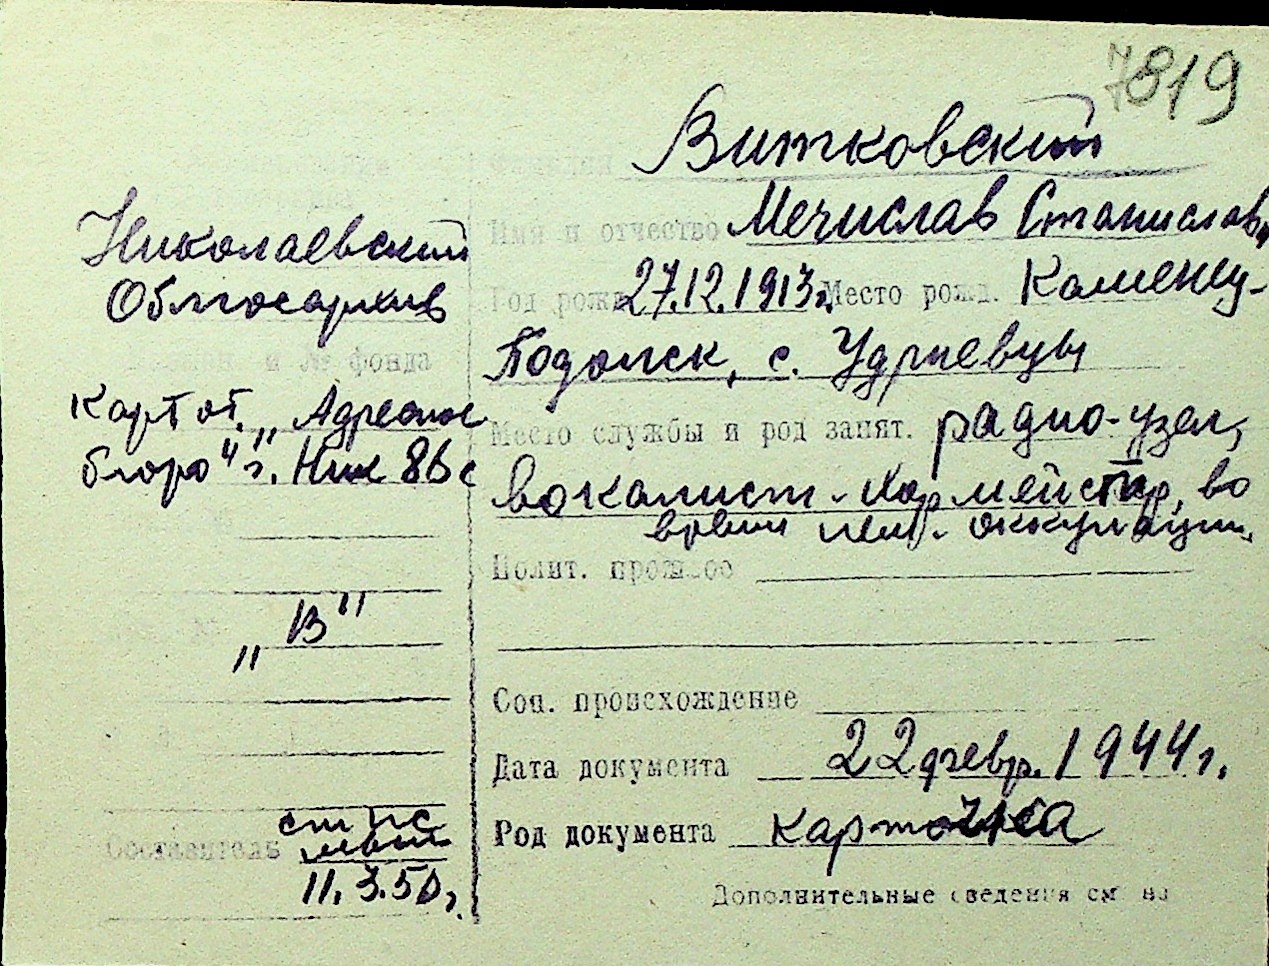 7819
Витковский
Имя и отчество Мечислав Станиславов
Год рожд. 27.12.1913г. Место рожд. Каменец-
Подольск, с. Удриевцы
Место службы и род занят. радио-узел,
вокалист-хормейстер, во
время нем. оккупации.
Полит. прошлое
Соц. происхождение
Дата документа 22 февр. 1944 г.
Род документа карточка
Дополнительные сведения см на
Николаевский
Облгосархив
и № фонда
Картот. „Адресное
бюро" г. Ник 86с
„В"
Составитель
11.3.50г.